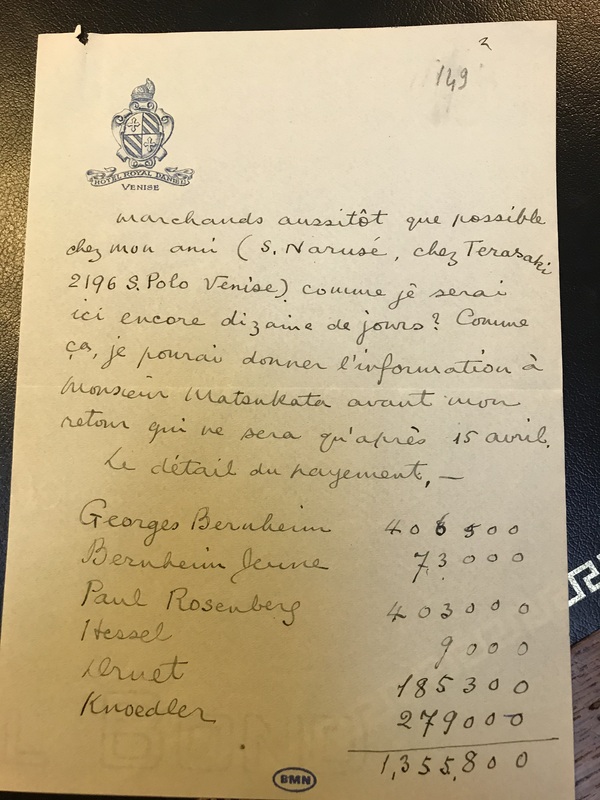 2
149
HOTEL ROYAL DANIELI
VENISE
marchands aussitôt que possible
chez mon ami (S. Narusé, chez Terasaki
2196 S. Polo Venise) comme je serai
ici encore dizaine de jours? Comme
ça, je pourai donner l'information à
Monsieur Matsukata avant mon
retour qui ne sera qu'après 15 avril.
Le détail du payement, —
Georges Bernheim 406500
Bernheim Jeune 73000
Paul Rosenberg 403000
Hessel 9000
Druet 185300
Knoedler 279000
1,355,800
BMN